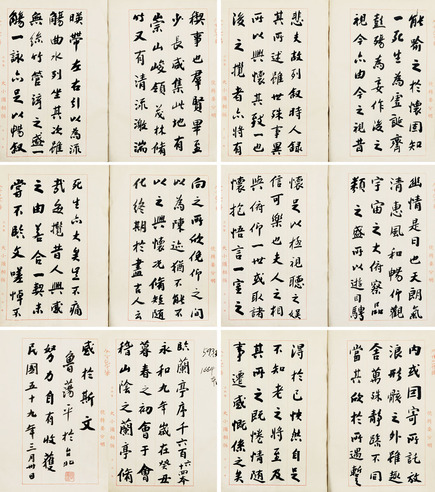 臨蘭亭序千六百十六本
永和九年歲在癸丑
暮春之初會于會
稽山陰之蘭亭脩
禊事也羣賢畢至
少長咸集此地有
崇山峻領茂林脩
竹又有清流激湍
暎帶左右引以為流
觴曲水列坐其次雖
無絲竹管絃之盛一
觴一詠亦足以暢叙
幽情是日也天朗氣
清惠風和暢仰觀
宇宙之大俯察品
類之盛所以遊目騁
懷足以極視聽之娛
信可樂也夫人之相
與俯仰一世或取諸
懷抱悟言一室之
內或因寄所託放
浪形骸之外雖趣
舍萬殊静躁不同
當其欣於所遇蹔
得於己怏然自足
不知老之將至及
其所之既惓情隨
事遷感慨係之矣
向之所欣俛仰之間
以為陳迹猶不能不
以之興懷況脩短隨
化終期於盡古人云
死生亦大矣豈不痛
哉每攬昔人興感
之由若合一契未
嘗不臨文嗟悼不
能喻之於懷固知
一死生為虛誕齊
彭殤為妄作後之
視今亦由今之視昔
悲夫故列叙時人録
其所述雖世殊事異
所以興懷其致一也
後之攬者亦將有
感於斯文
魯蕩平於台北
努力自有收穫
民國五十九年三月卅日